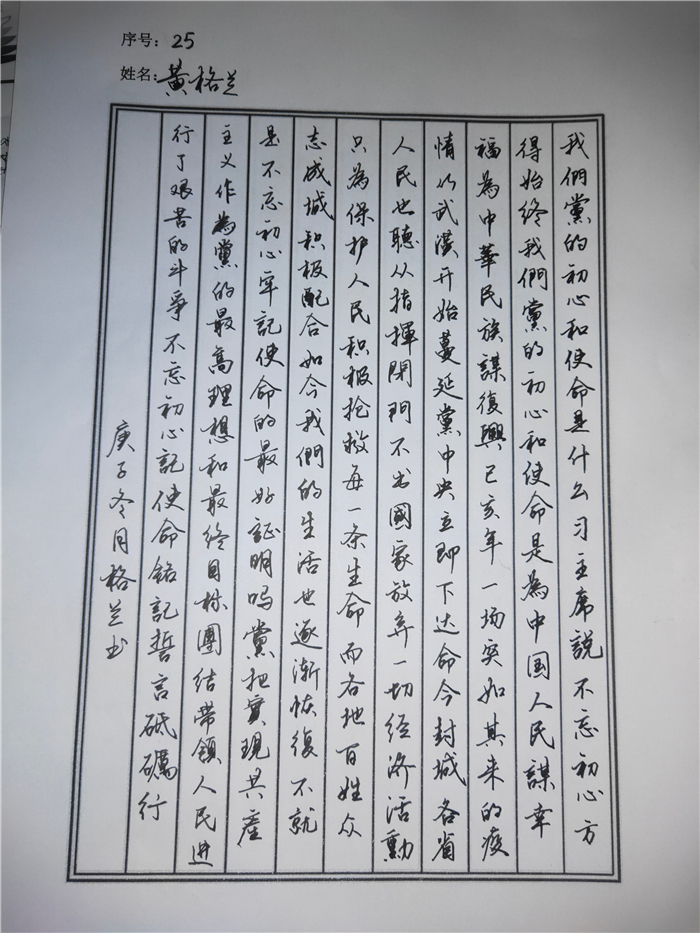 序号：25
姓名：黃格兰
我們黨的初心和使命是什么习主席說不忘初心方
得始终我們黨的初心和使命是為中国人民謀幸
福為中華民族謀復興己亥年一场突如其来的疫
情以武漢开始蔓延黨中央立即下达命令封城各省
人民也聽从指揮閉門不出國家放弃一切经济活動
只為保护人民积极抢救每一条生命而各地百姓众
志成城积极配合如今我們的生活也逐漸恢復不就
是不忘初心牢記使命的最好証明吗黨把實現共産
主义作為黨的最高理想和最终目标團结带領人民进
行了艰苦的斗爭不忘初心記使命銘記誓言砥礪行
庚子冬月格兰书